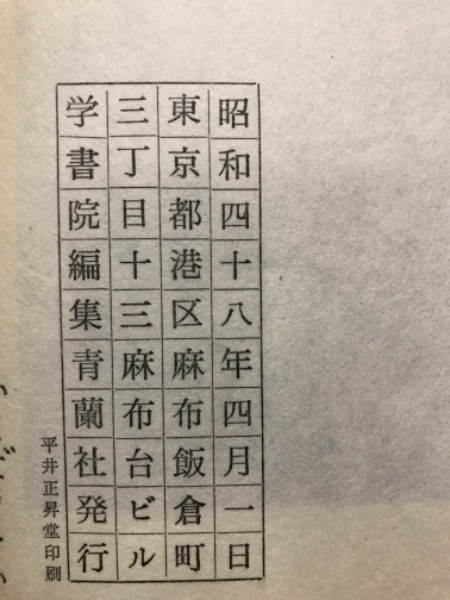 昭和四十八年四月一日
東京都港区麻布飯倉町
三丁目十三麻布台ビル
学書院編集青蘭社発行
平井正昇堂印刷